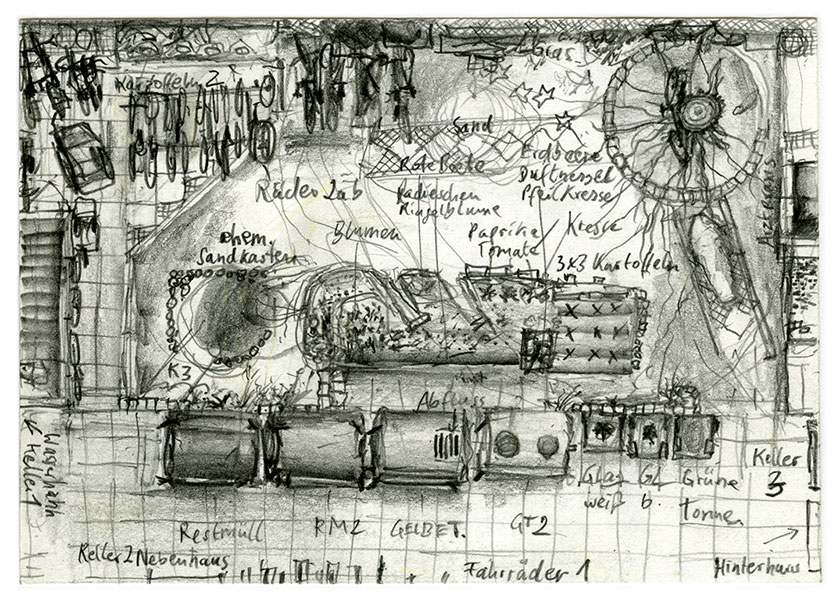 Gras
Kartoffeln 2
Sand
Rote Beete
Erdbeere
Duftnessel
Pfeilkresse
Räder
Radieschen
Ringelblume
Blumen
Paprika/
Tomate
Kresse
ehem.
Sandkasten
3x3 Kartoffeln
K3
Abfluss
Wasserhahn
Keller 1
Glas
weiß
GL
b.
Grüne
Tonne
Keller
3
Restmüll
RM2
GELBE T.
GT2
Keller 2 Nebenhaus
Fahrräder 1
Hinterhaus